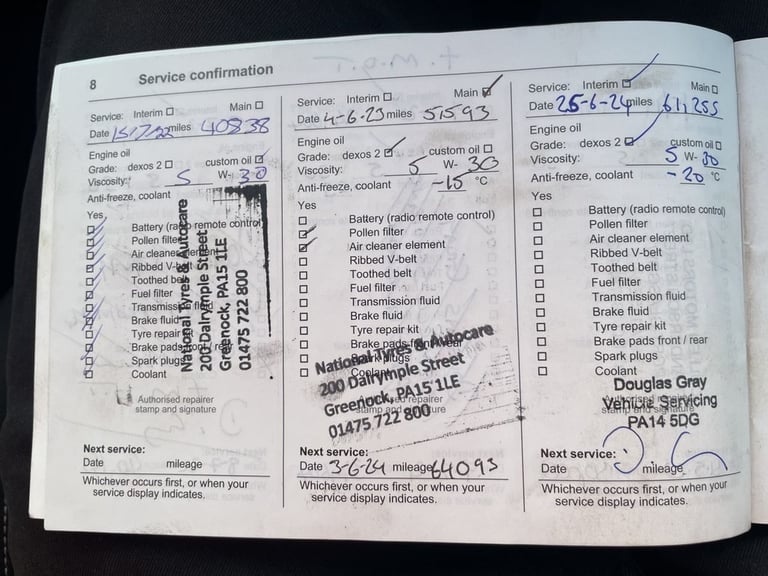 8 Service confirmation
Service: Interim ☐ Main ☐
Date 15/7/22 miles 40838
Engine oil
Grade: dexos 2 ☐ custom oil ☑
Viscosity: 5 W- 30
Anti-freeze, coolant
Yes
☑ Battery (radio remote control)
☑ Pollen filter
☑ Air cleaner element
☑ Ribbed V-belt
☑ Toothed belt
☑ Fuel filter
☑ Transmission fluid
☑ Brake fluid
☑ Tyre repair kit
☑ Brake pads front / rear
☑ Spark plugs
☑ Coolant
National Tyres & Autocare
200 Dalrymple Street
Greenock, PA15 1LE
01475 722 800
Authorised repairer
stamp and signature
Next service:
Date mileage
Whichever occurs first, or when your
service display indicates.
Service: Interim ☐ Main ☑
Date 4-6-23 miles 51593
Engine oil
Grade: dexos 2 ☑ custom oil ☐
Viscosity: 5 W- 30
Anti-freeze, coolant -15 °C
Yes
☐ Battery (radio remote control)
☑ Pollen filter
☑ Air cleaner element
☐ Ribbed V-belt
☐ Toothed belt
☐ Fuel filter
☐ Transmission fluid
☐ Brake fluid
☐ Tyre repair kit
☐ Brake pads front / rear
☐ Spark plugs
☐ Coolant
National Tyres & Autocare
200 Dalrymple Street
Greenock, PA15 1LE
01475 722 800
Authorised repairer
stamp and signature
Next service:
Date 3-6-24 mileage 64093
Whichever occurs first, or when your
service display indicates.
Service: Interim ☑ Main ☐
Date 25-6-24 miles 61,255
Engine oil
Grade: dexos 2 ☑ custom oil ☐
Viscosity: 5 W- 30
Anti-freeze, coolant -20 °C
Yes
☐ Battery (radio remote control)
☐ Pollen filter
☐ Air cleaner element
☐ Ribbed V-belt
☐ Toothed belt
☐ Fuel filter
☐ Transmission fluid
☐ Brake fluid
☐ Tyre repair kit
☐ Brake pads front / rear
☐ Spark plugs
☐ Coolant
Douglas Gray
Authorised repairer
Vehicle Servicing
stamp and signature
PA14 5DG
Next service:
Date mileage
Whichever occurs first, or when your
service display indicates.